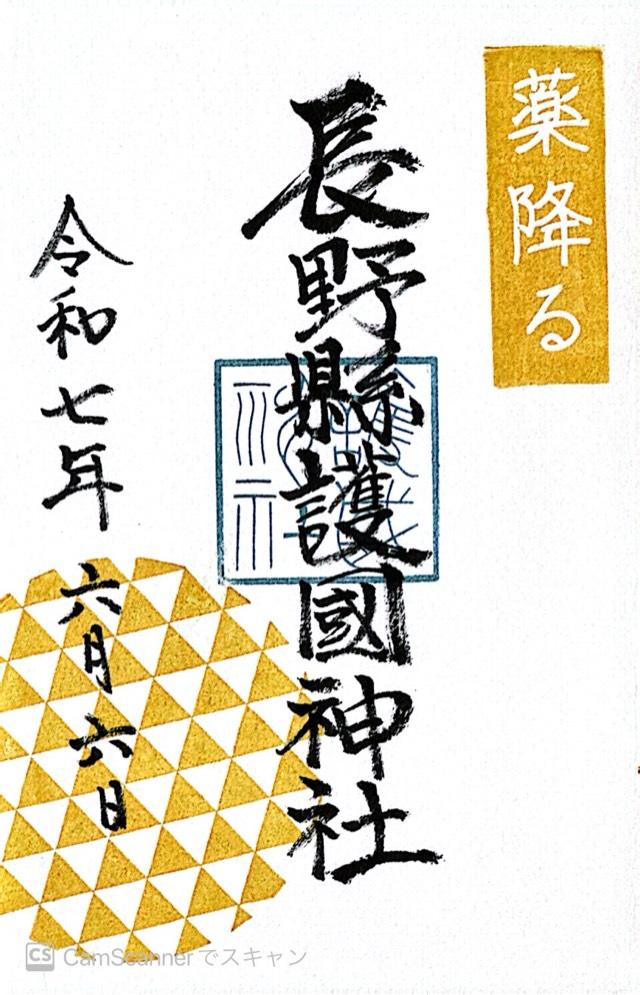 薬降る
長野縣護國神社
令和七年 六月 六日
CS CamScannerでスキャン